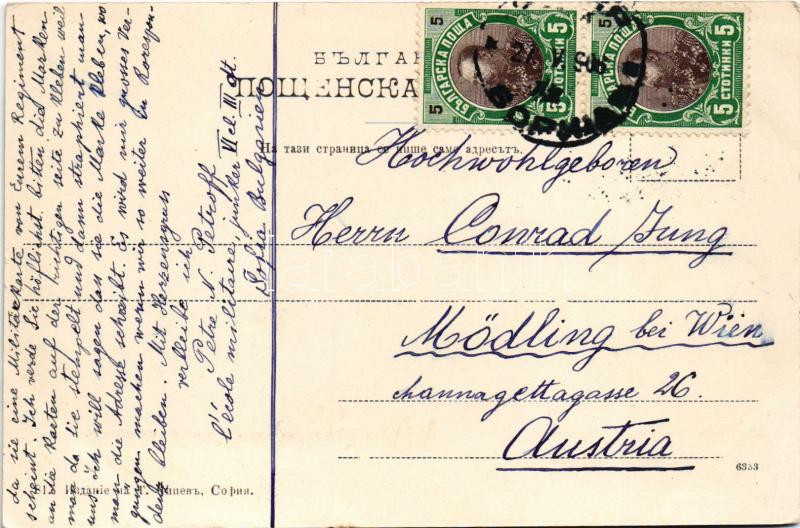 БЪЛГАР
ПОЩЕНСКА
На тази страница се пише само адресътъ.
5
БЪЛГАРСКА ПОЩА
5
СТОТИНКИ
5
БЪЛГАРСКА ПОЩА
5
СТОТИНКИ
Hochwohlgeboren
Herrn Conrad Jung
Mödling bei Wien
channagettagasse 26.
Austria
6353
Издание на Г. София.
da sie eine Militärkarte von Eurem Regiment
scheint. Ich werde Sie höflichst bitten die Marken
an die Karten auf der richtigen seite zu kleben weil
man da sie stempelt und dann straphiert man
uns ich will sagen das sie die Marke kleben, wo
men die Adresse schreibt. Es wird mir grosses Ver-
gungen machen wenn wir so weiter in
denz bleiben. Mit Herzensgruss
verbleibe ich
Petre N. Petroff
l'école militaire, junker VI cl. III
Sofia Bulgarien
darabanth